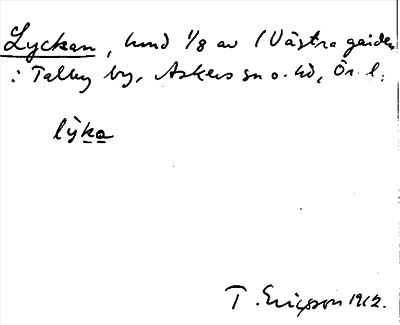 Lyckan, hmd 1/8 av (Västra gården
i Talby by, Askers sn o. hd, Ör. l.
lỳka
T. Ericsson 1912.